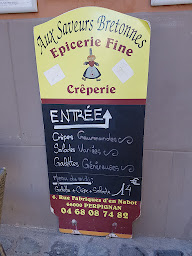 Aux Saveurs Bretonnes
Epicerie Fine
Crêperie
ENTRÉE
Crêpes Gourmandes
Salades Variées
Galettes Généreuses
Menu du midi
Galette + Crêpe + Salade 14 €
6, Rue Fabriques d'en Nabot
66000 PERPIGNAN
04 68 08 74 82